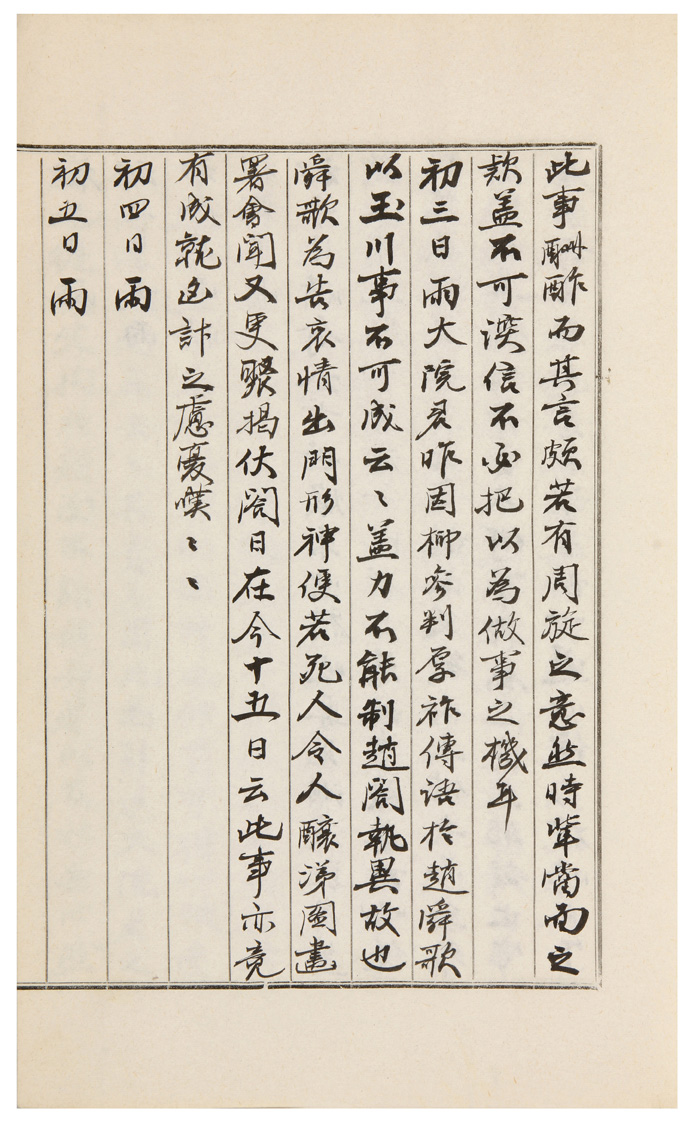 此事酬酢而其言頗若有周旋之意然時輩當而之
款盖不可深信不必把以為做事之機耳
初三日雨大院君昨因柳參判厚祚傳語於趙舜歌
以玉川事不可成云〻盖力不能制趙閤執異故也
舜歌為告哀情出門形神便若死人令人釀涕圖畫
署會聞又更驟揭伏閤日在今十五日云此事亦竟
有成就 訃之慮憂嘆〻〻
初四日雨
初五日雨